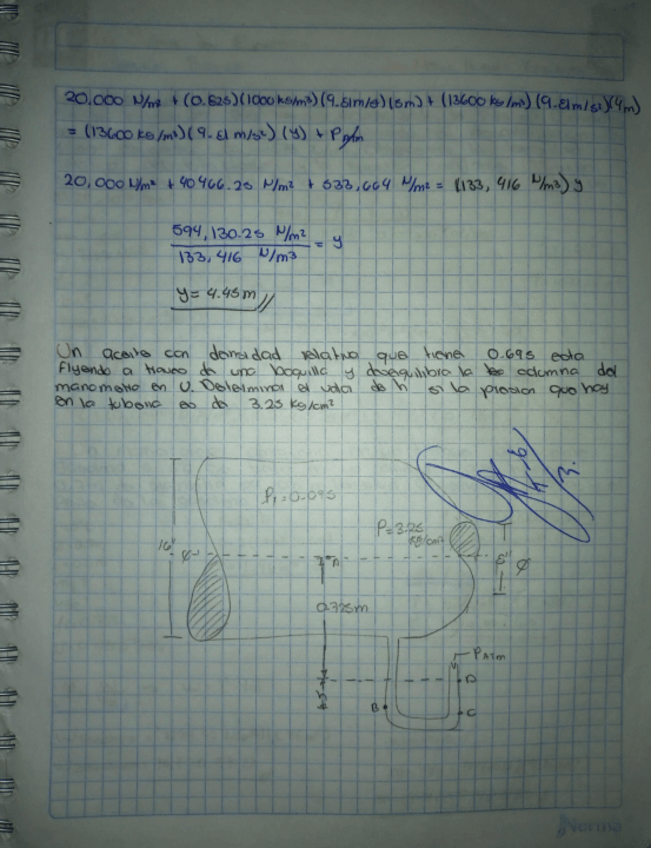 20,000 N/m² + (0.825)(1000 kg/m³)(9.81m/s)(5m) + (13600 kg/m³)(9.81m/s²)(4m)
= (13600 kg/m³)(9.81 m/s²)(y) + Patm
20,000 N/m² + 40466.25 N/m² + 533,664 N/m² = (133,416 N/m³) y
594,130.25 N/m²
133,416 N/m³
= y
y = 4.45m
Un aceite con densidad relativa que tiene 0.695 esta
flyendo a traves de una boquilla y desequilibra la columna del
manometro en U. Determinar el valor de h si la presion que hay
en la tuberia es de 3.25 kg/cm²
P₁ = 0.695
P=3.25
kg/cm²
16"
6" φ
0.325m
PATM
B
D
C
Norma